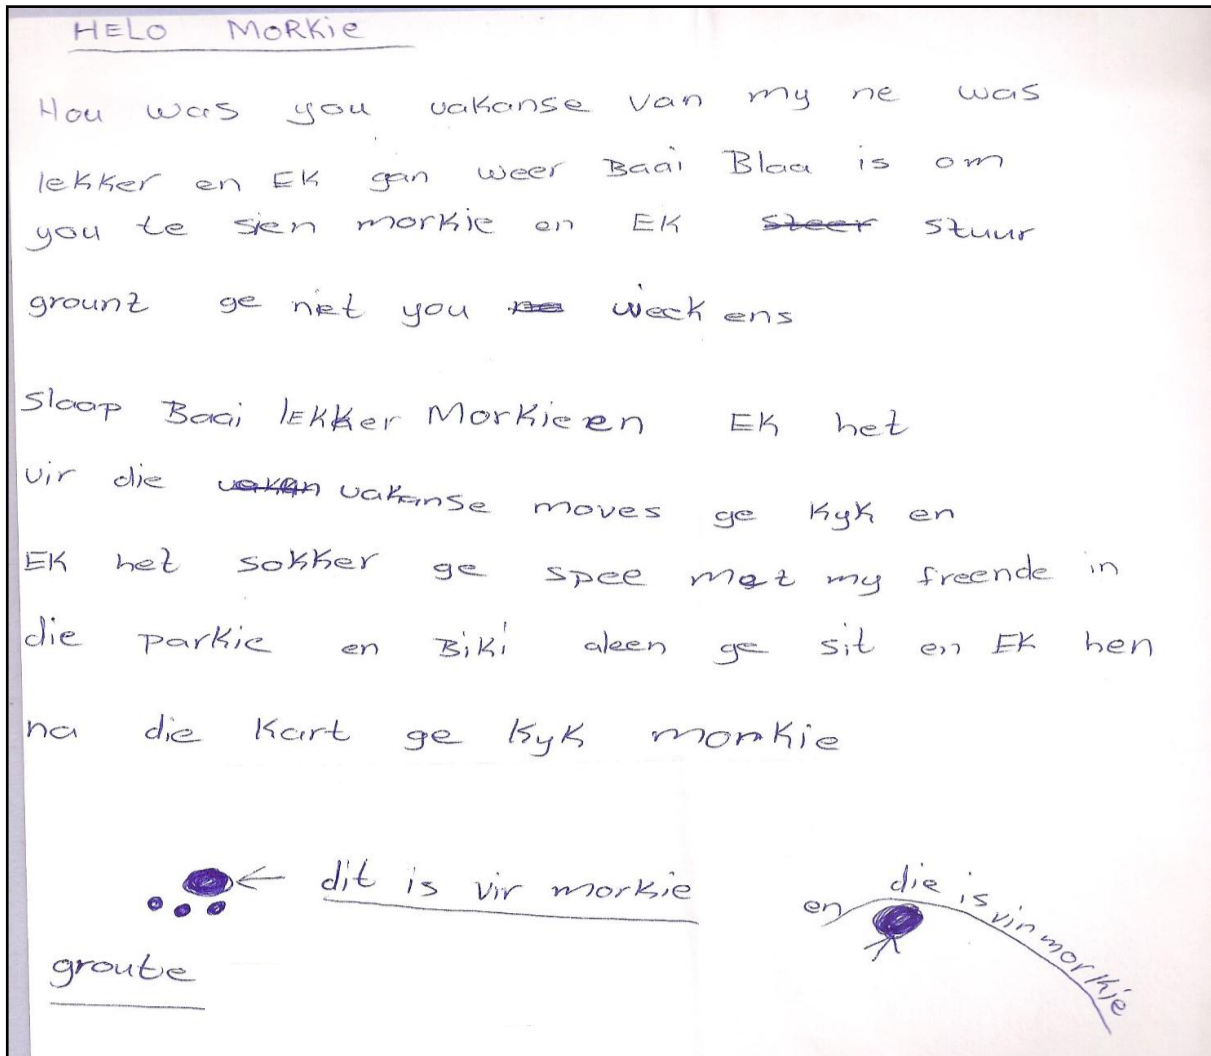 HELO MORKie
Hou was you vakanse van my ne was
lekker en EK gan weer Baai Blaa is om
you te sien morkie en EK steer stuur
grount ge niet you weekens
Slaap Baai lekker Morkie en EK het
vir die vakan vakanse moves ge kyk en
EK het sokker ge spee met my freende in
die parkie en Biki aleen ge sit en EK hen
na die Kart ge kyk morkie
dit is vir morkie
en die is vir morkie
groute